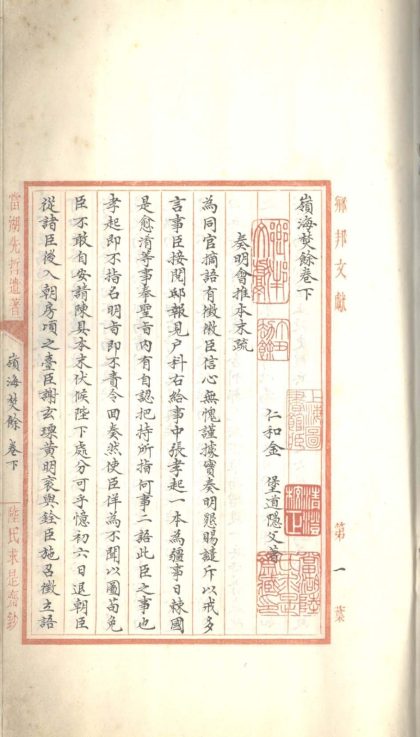 鄉邦文獻
第一葉
嶺海焚餘卷下
仁和金 堡道隱父著
奏明會推本末疏
為同官摘語有激微臣信心無愧謹據實奏明懇賜譴斥以戒多
言事臣接閱邸報見户科右給事中張孝起一本為疆事日棘國
是愈淆等事奉聖旨內有自認把持所指何事二語此臣之事也
孝起即不指名明旨即不責令回奏然使臣佯為不聞以圖苟免
臣不敢自安請陳其本末伏候陛下處分可乎憶初六日退朝臣
從諸臣後入朝房頃之臺臣謝玄瑮黃明衮與銓臣施召徵立語
當湖先哲遺著
嶺海焚餘 卷下
陸氏求是齋鈔